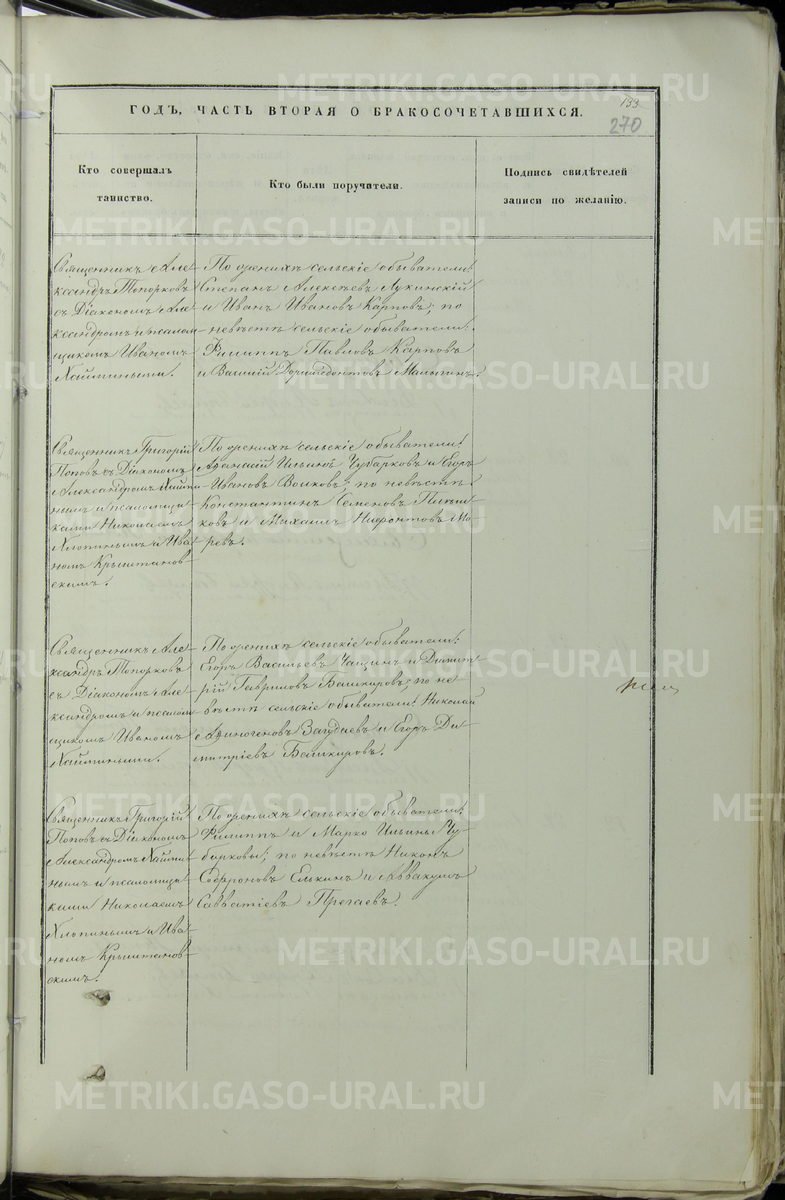 133
270
ГОДЪ, ЧАСТЬ ВТОРАЯ О БРАКОСОЧЕТАВШИХСЯ.
Кто совершалъ
таинство.
Кто были поручатели.
Подпись свидѣтелей
записи по желанію.
Священникъ Але-
ксандръ Топорковъ
съ Діакономъ Але-
ксандромъ и псалом-
щикомъ Иваномъ
По женихѣ сельскіе обыватели:
Степанъ Алексѣевъ Лукинскій
и Иванъ Ивановъ Карповъ; по
невѣстѣ сельскіе обыватели:
Филиппъ Павловъ Карповъ
и Василій Доримедонтовъ Малыгинъ.
Священникъ Григорій
Поповъ съ Діакономъ
Александромъ
нымъ и псаломщи-
ками Николаемъ
Хлопинымъ и Ива-
номъ Крыштанов-
скимъ.
По женихѣ сельскіе обыватели:
Афанасій Ильинъ Чубарковъ и Егоръ
Ивановъ Волковъ; по невѣстѣ:
Константинъ Семеновъ
ковъ и Михаилъ Нифонтовъ Мо-
ревъ.
Священникъ Але-
ксандръ Топорковъ
съ Діакономъ Але-
ксандромъ и псалом-
щикомъ Иваномъ
По женихѣ сельскіе обыватели:
Егоръ Васильевъ Чащинъ и Димит-
рій Гавриловъ Башкировъ; по не-
вѣстѣ сельскіе обыватели: Николай
Афиногеновъ Загудаевъ и Егоръ Ди-
митріевъ Башкировъ.
Священникъ Григорій
Поповъ съ Діакономъ
Александромъ
нымъ и псаломщи-
ками Николаемъ
Хлопинымъ и Ива-
номъ Крыштанов-
скимъ.
По женихѣ сельскіе обыватели:
Филиппъ и Марко Ильины Чу-
барковы; по невѣстѣ Никонъ
Софроновъ Елькинъ и Аввакумъ
Савватіевъ Прегаевъ.
METRIKI.GASO-URAL.RU